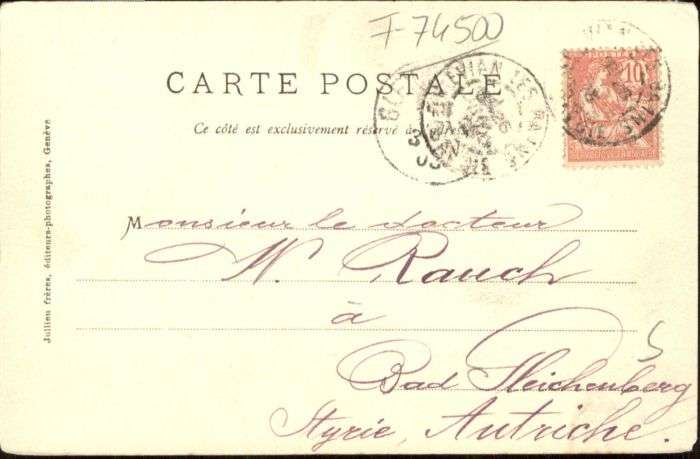 F-74500
CARTE POSTALE
Ce côté est exclusivement réservé à
EVIAN LES BAINS
10
Monsieur le docteur
W. Rauch
à
Bad Gleichenberg
Styrie, Autriche.
5
Jullien frères, éditeurs-photographes, Genève